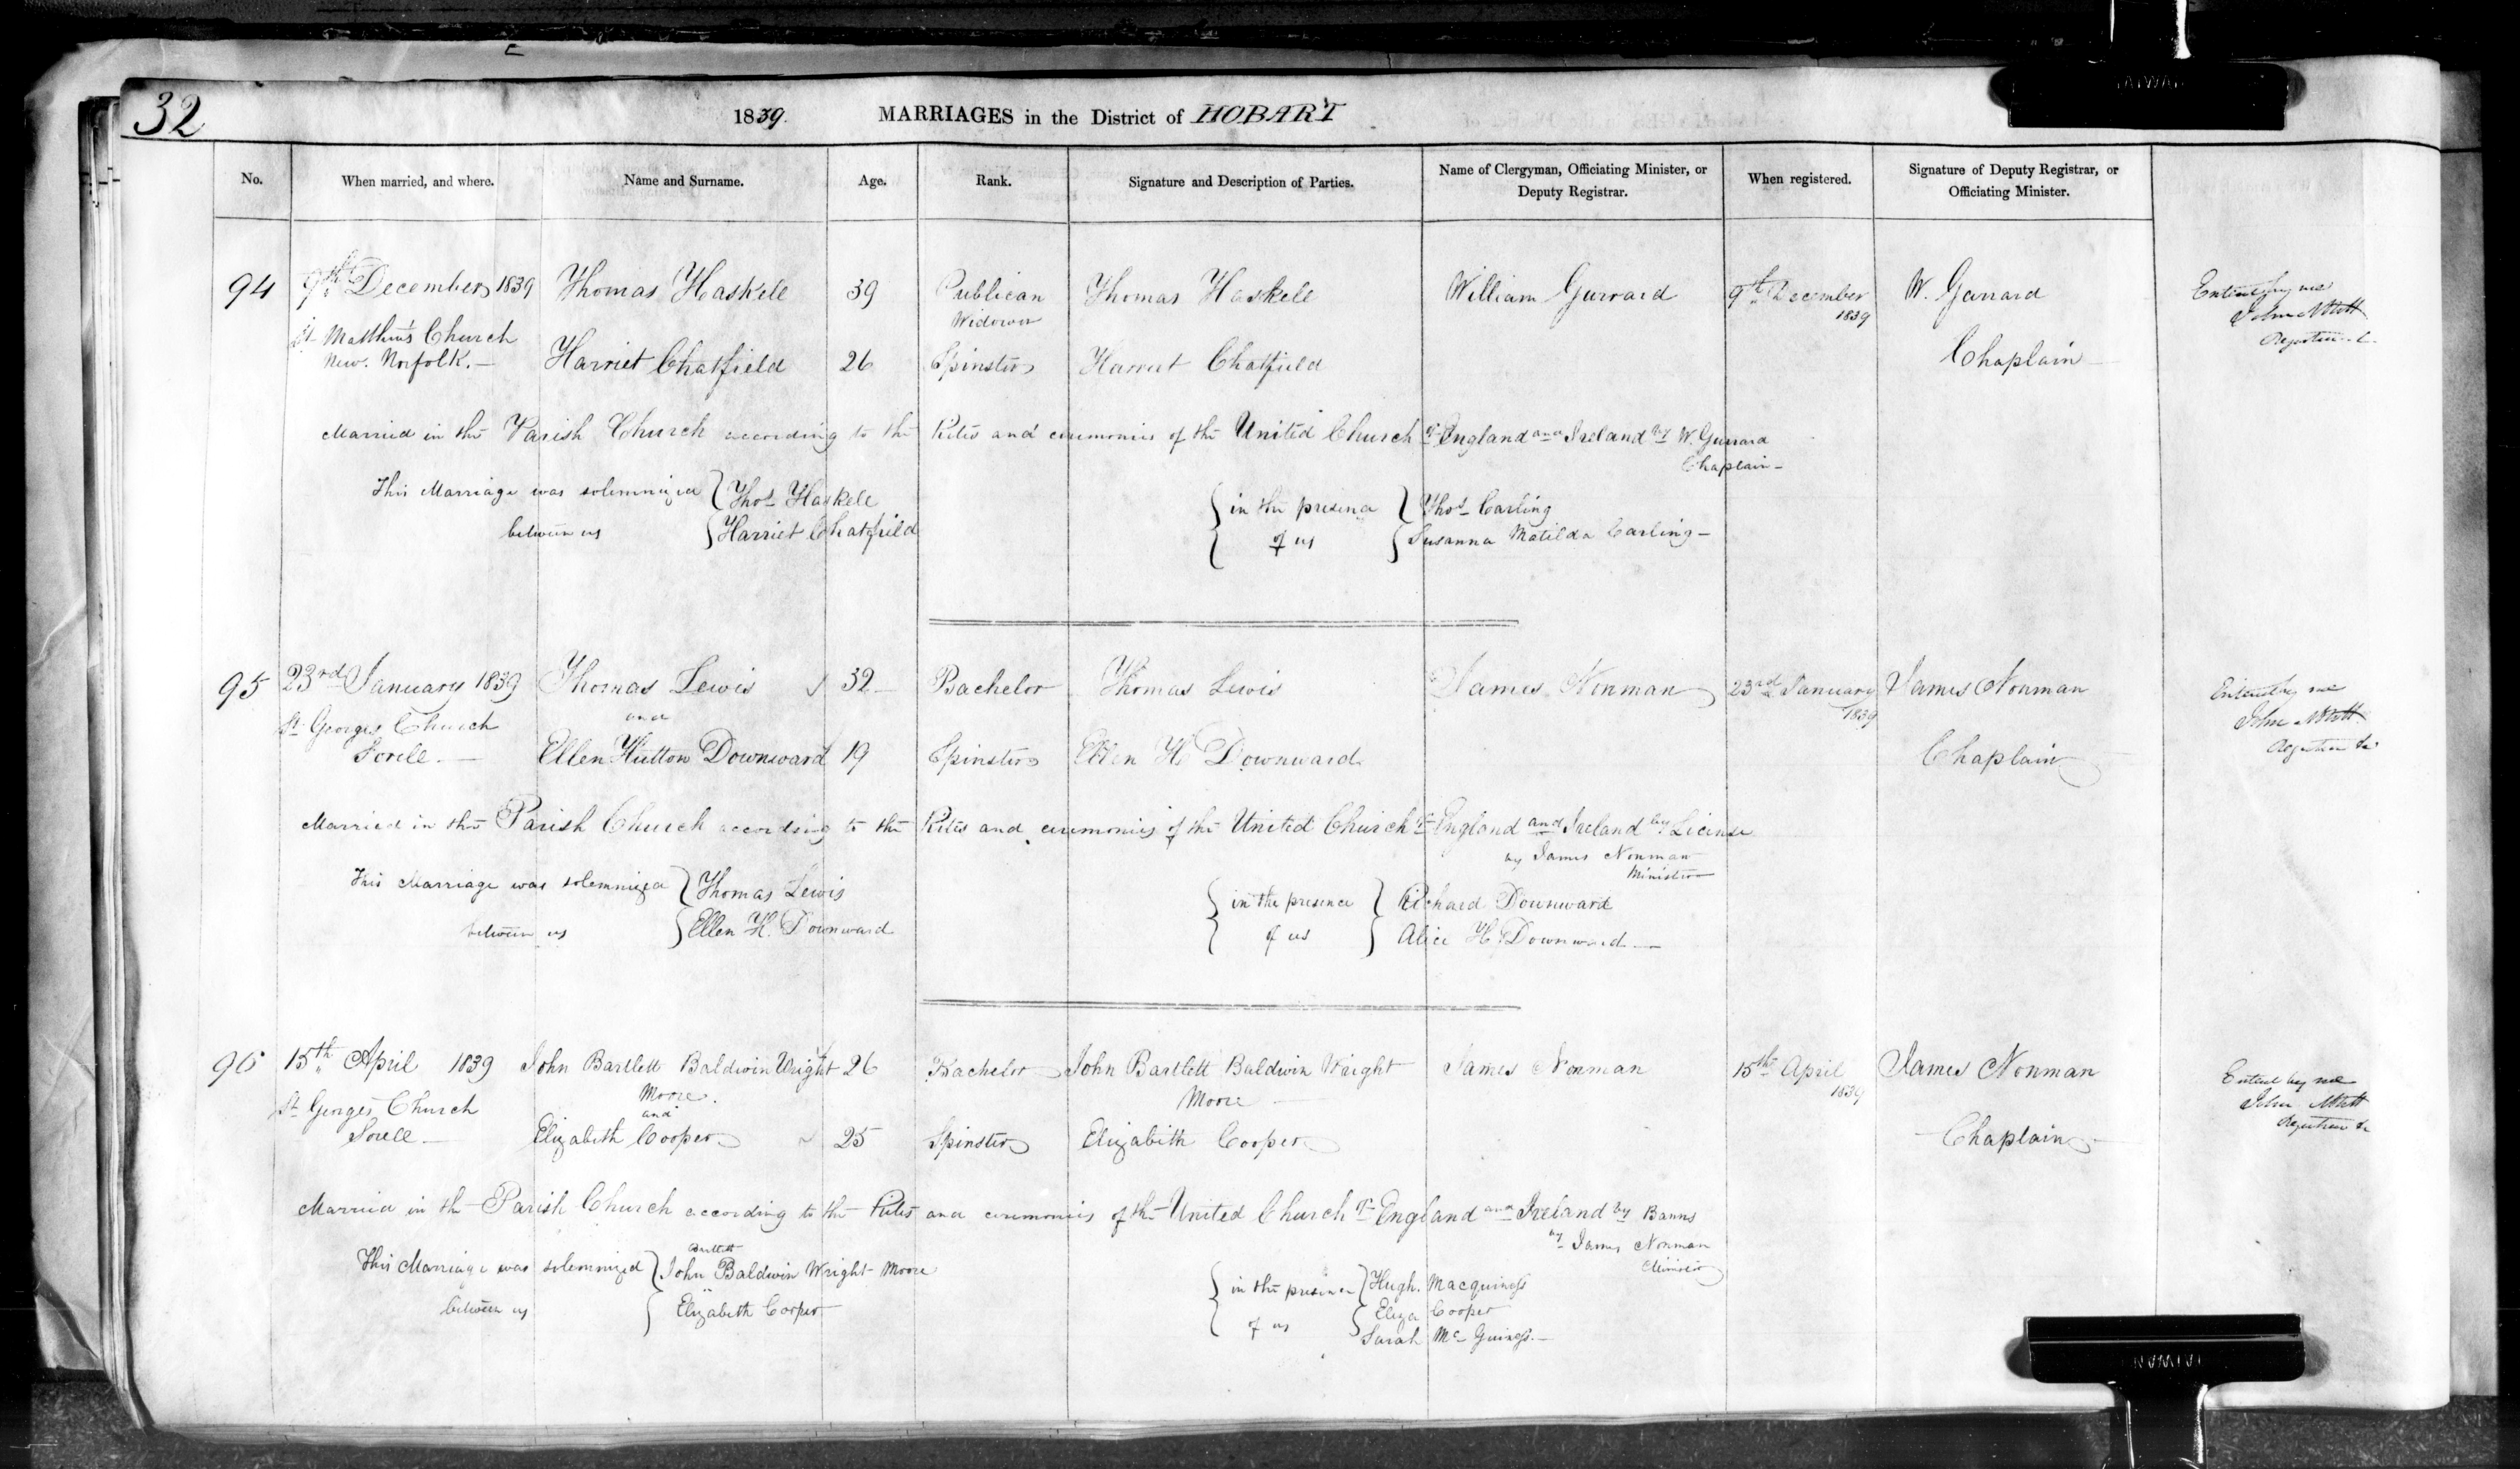 32
1839. MARRIAGES in the District of HOBART
No. When married, and where. Name and Surname. Age. Rank. Signature and Description of Parties. Name of Clergyman, Officiating Minister, or Deputy Registrar. When registered. Signature of Deputy Registrar, or Officiating Minister.
94 9th December 1839 Thomas Haskell 39 Publican Thomas Haskell William Garrard 9th December W. Garrard Entered by me
Widower 1839 John Abbott
St Matthew's Church Registrar
New Norfolk. — Harriet Chatfield 26 Spinster Harriet Chatfield Chaplain
Married in the Parish Church according to the Rites and ceremonies of the United Church of England and Ireland by W. Garrard
Chaplain —
This Marriage was solemnized Thos Haskell in the presence Thos Carling
between us Harriet Chatfield of us Susanna Matilda Carling —
95 23rd January 1839 Thomas Lewis 32 Bachelor Thomas Lewis James Norman 23rd January James Norman Entered by me
St Georges Church and 1839 John Abbott
Sorell. — Ellen Hutton Downward 19 Spinster Ellen H. Downward Chaplain Registrar &c
Married in the Parish Church according to the Rites and ceremonies of the United Church of England and Ireland by License
by James Norman
Minister
This Marriage was solemnized Thomas Lewis in the presence Richard Downward
between us Ellen H. Downward of us Alice H. Downward —
96 15th April 1839 John Bartlett Baldwin Wright 26 Bachelor John Bartlett Baldwin Wright James Norman 15th April James Norman Entered by me
St Georges Church Moore. Moore 1839 John Abbott
and Registrar &c
Sorell — Elizabeth Cooper 25 Spinster Elizabeth Cooper Chaplain
Married in the Parish Church according to the Rites and ceremonies of the United Church of England and Ireland by Banns
by James Norman
Minister
Bartlett
This Marriage was solemnized John Baldwin Wright Moore in the presence Hugh. Macguiness
between us Elizabeth Cooper of us Eliza Cooper
Sarah Mc Guiness. —
TAIWAN
TAIWAN